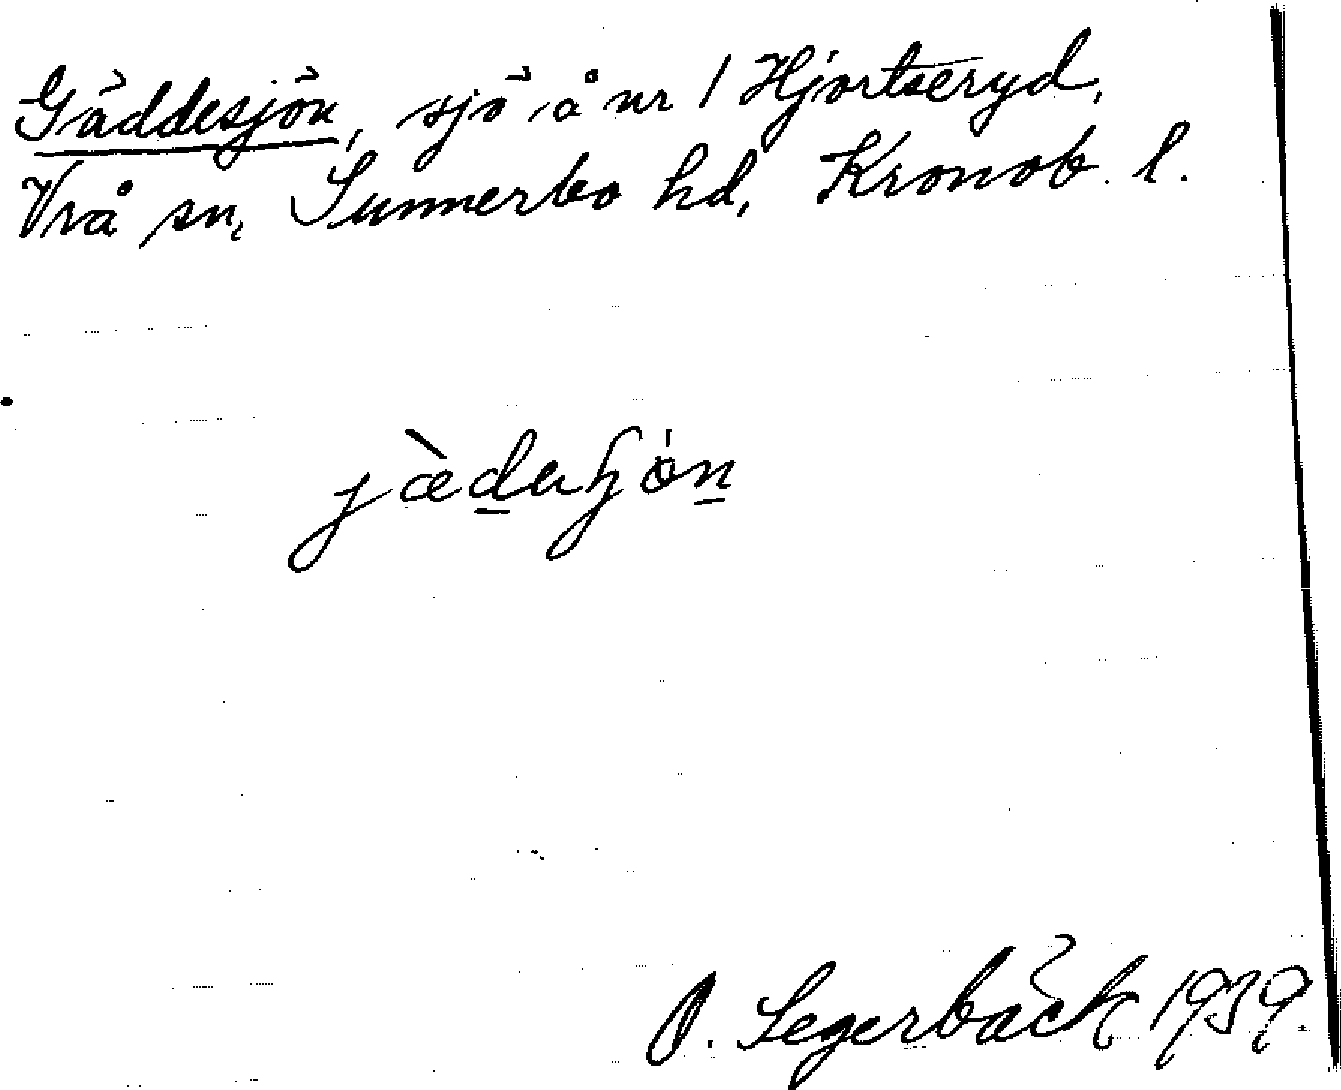 Gäddesjön, sjö å nr 1 Hjortseryd,
Vrå sn, Sunnerbo hd, Kronob. l.
O. Segerbäck 1939.